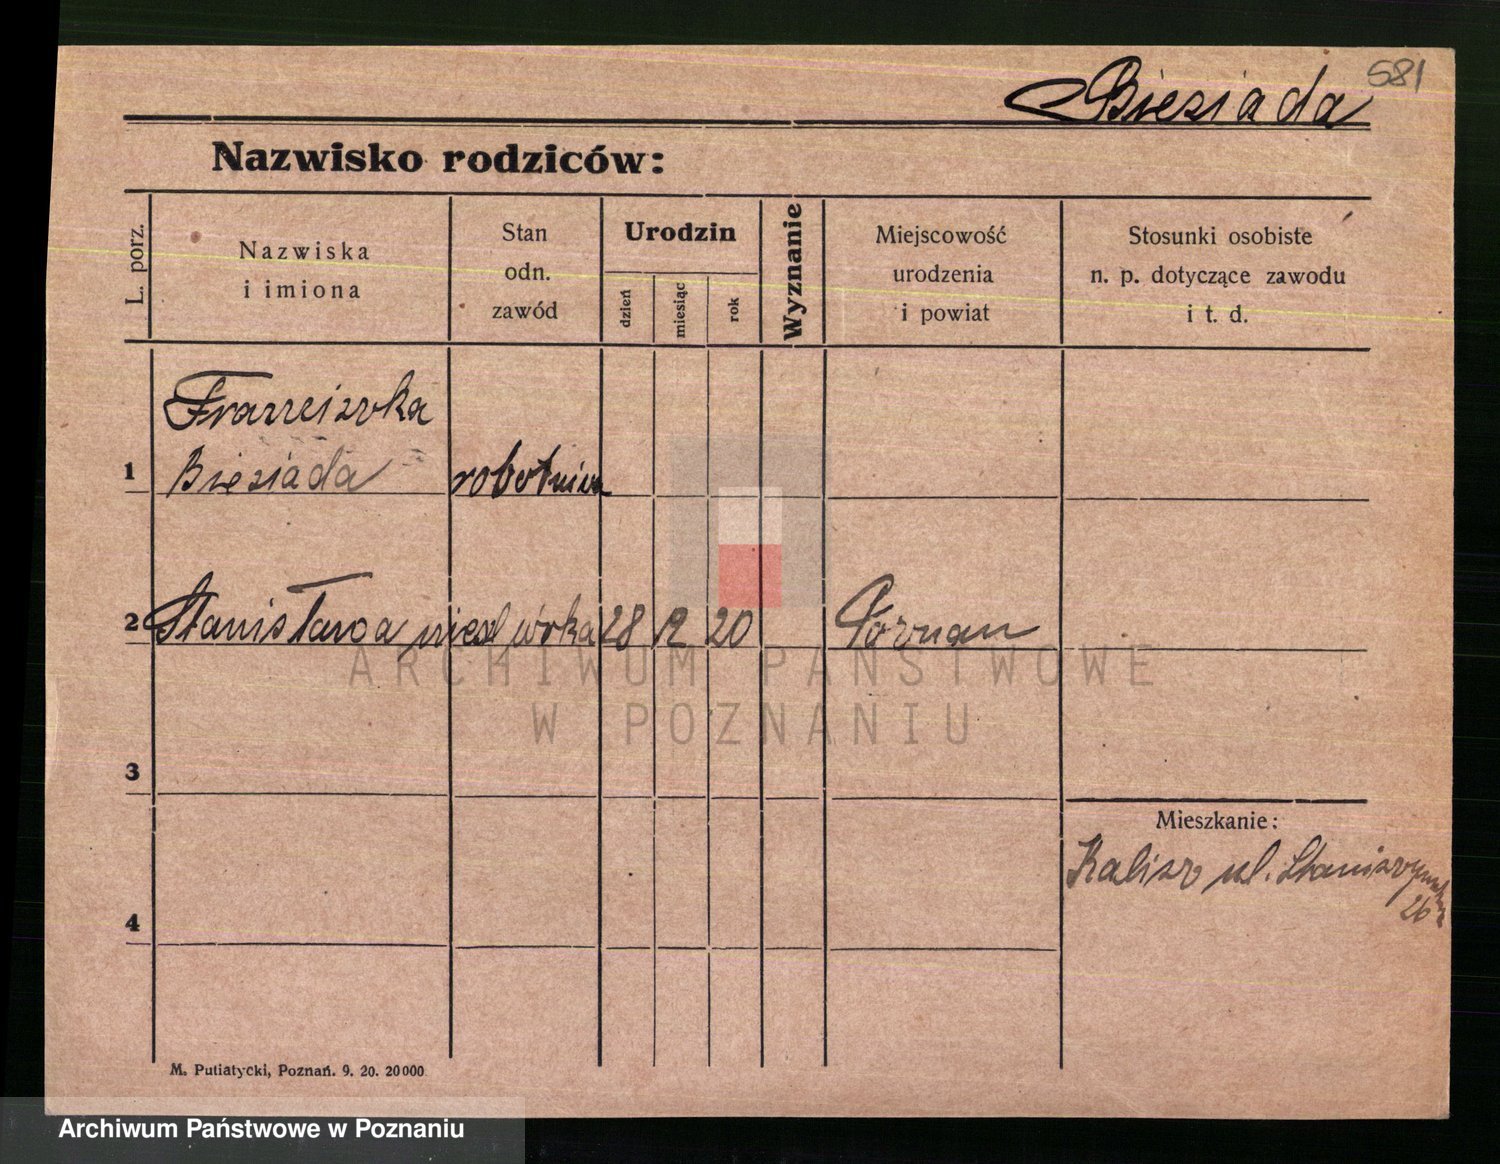 581
Biesiada
Nazwisko rodziców:
L. porz.
Nazwiska
i imiona
Stan
odn.
zawód
Urodzin
dzień
miesiąc
rok
Wyznanie
Miejscowość
urodzenia
i powiat
Stosunki osobiste
n. p. dotyczące zawodu
i t. d.
Franciszka
1 Biesiada robotnica
2 Stanisława nieśl córka 28 12 20 Poznan
3
Mieszkanie:
Kalisz ul.
26
4
M. Putiatycki, Poznań. 9. 20. 20000
ARCHIWUM PAŃSTWOWE
W POZNANIU
Archiwum Państwowe w Poznaniu